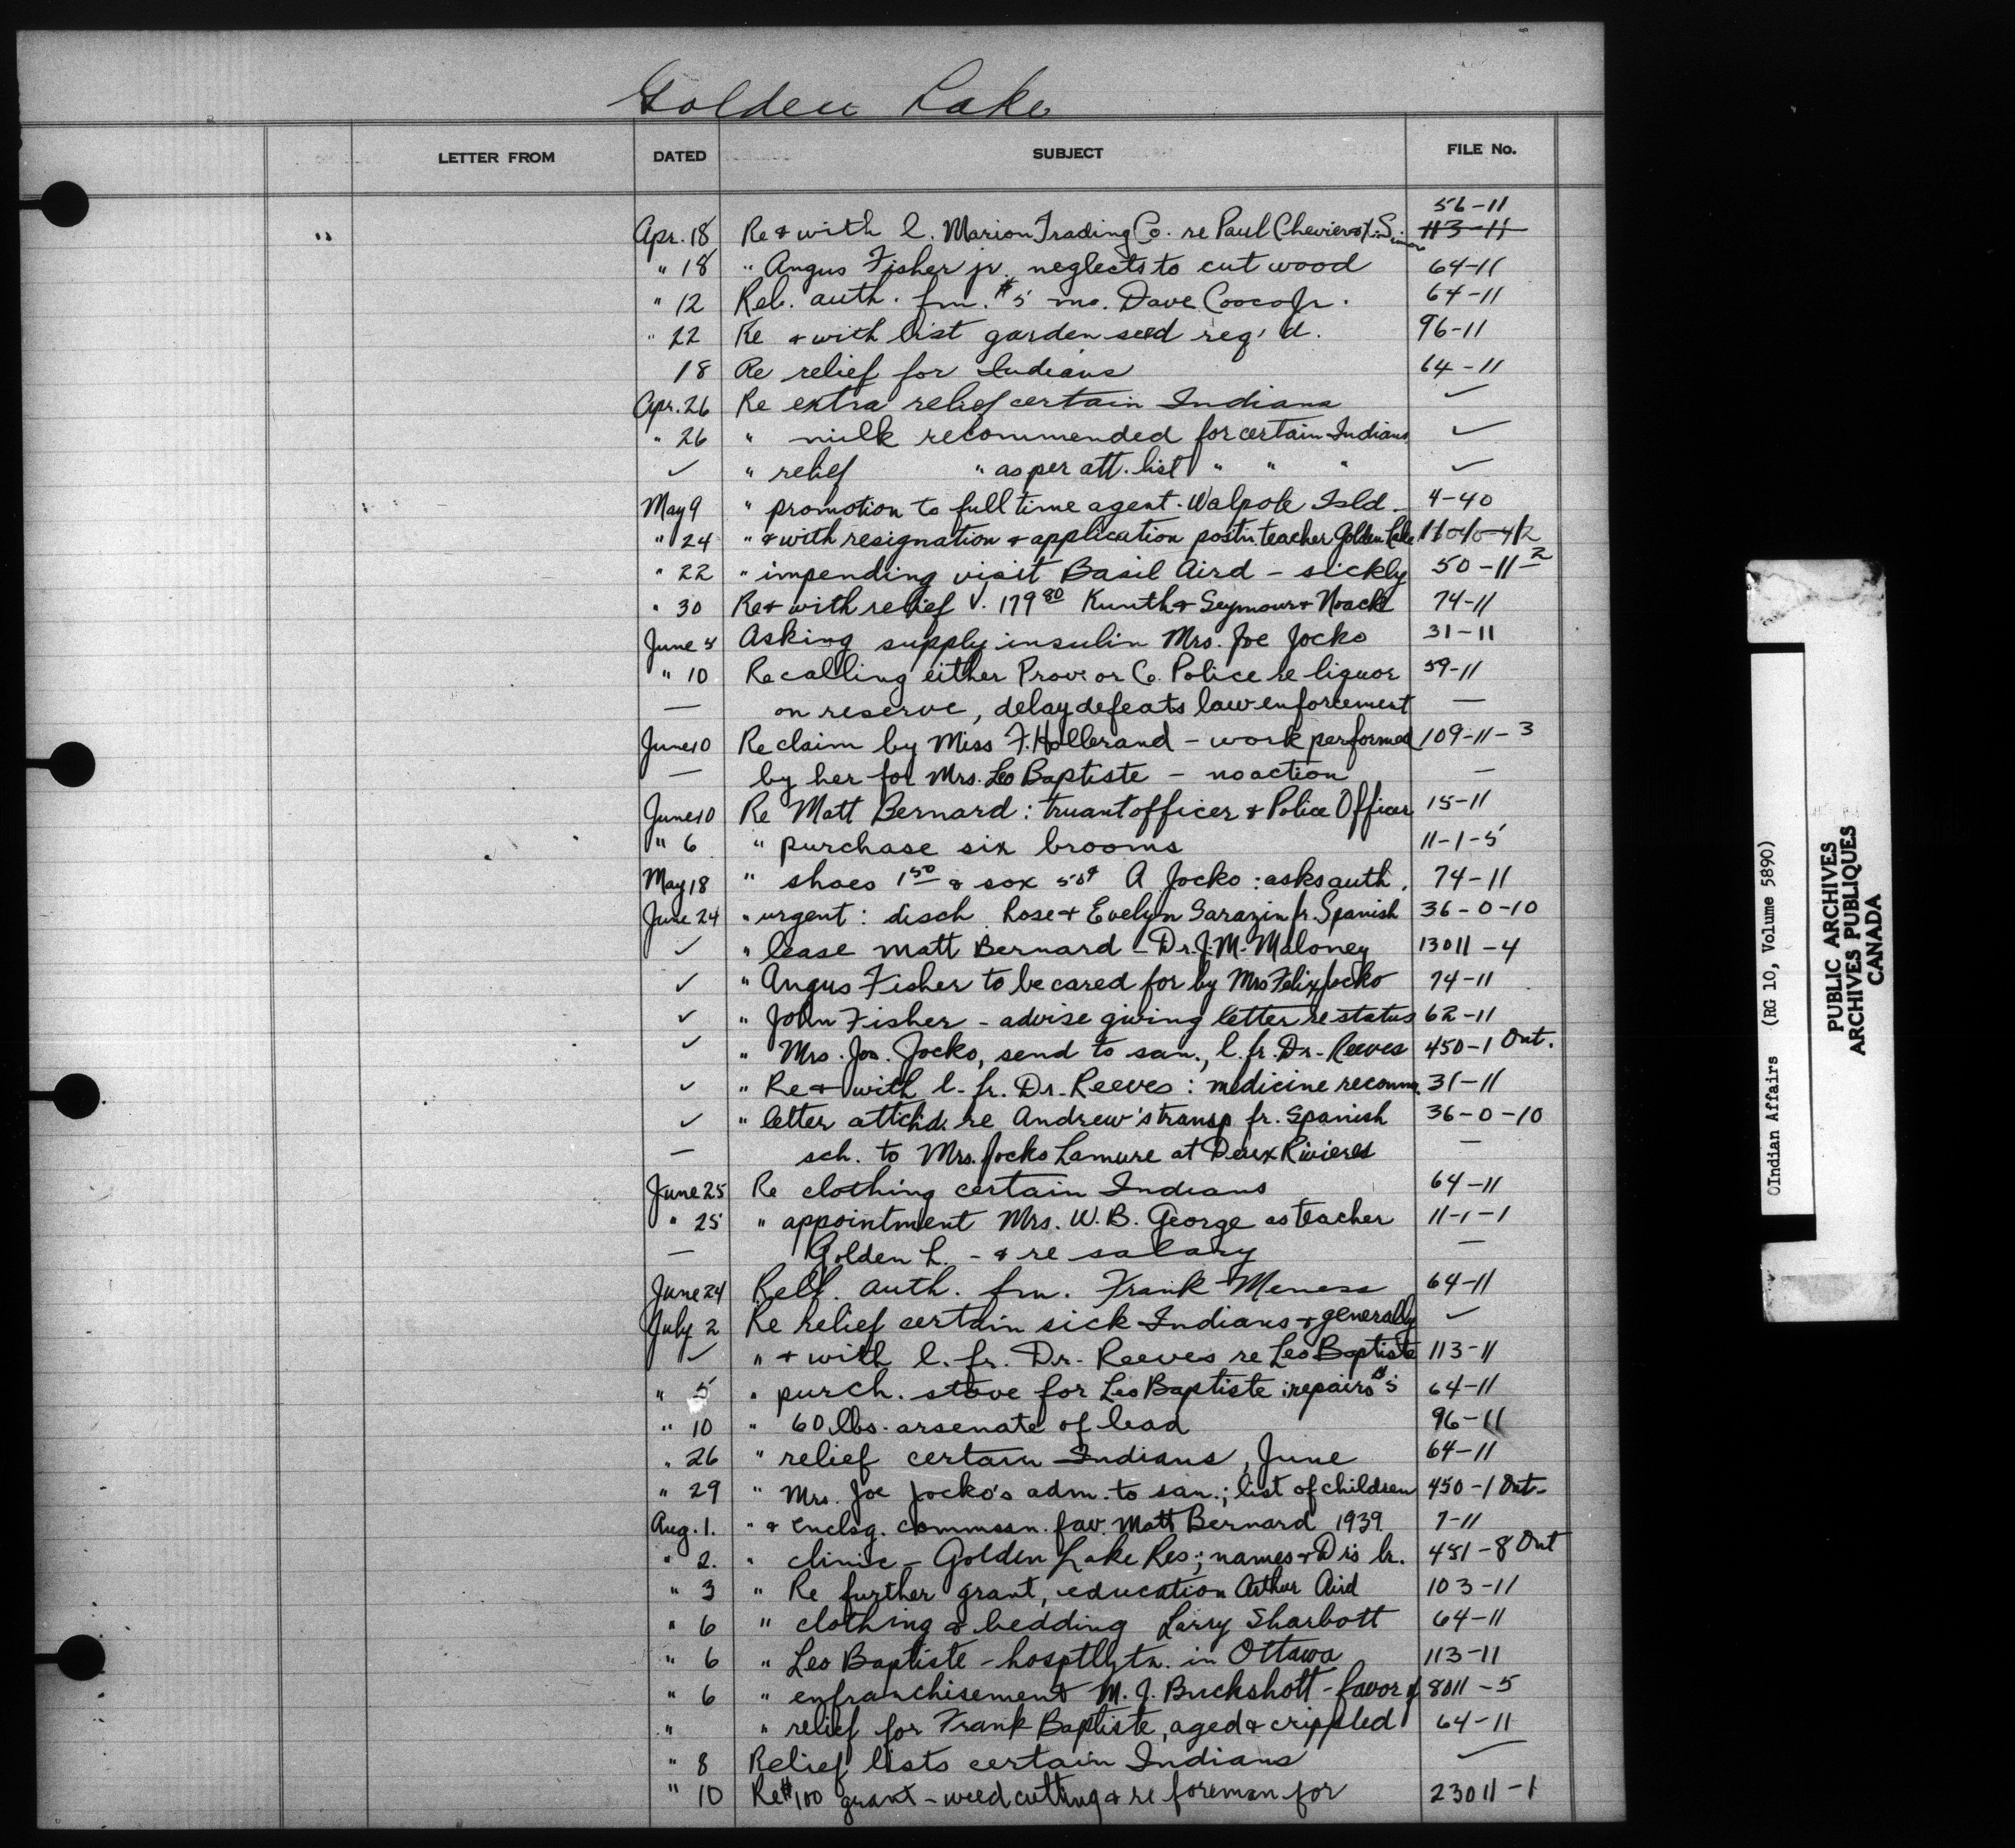 Golden Lake
LETTER FROM DATED SUBJECT FILE No.
56-11
" Apr. 18 Re & with l. Marion Trading Co. re Paul 113-11
" 18 " Angus Fisher jr. neglects to cut wood 64-11
" 12 Rel. auth. frm. $5 mo. Dave Cooco Jr. 64-11
" 22 Re & with list garden seed req'd. 96-11
18 Re relief for Indians 64-11
Apr. 26 Re extra relief certain Indians ✓
" 26 " milk recommended for certain Indians ✓
✓ " relief " as per att. list " " " ✓
May 9 " promotion to full time agent - Walpole Isld. 4-40
" 24 " & with resignation & application postn. teacher Golden Lake
" 22 " impending visit Basil Aird - sickly 50-11-2
" 30 Re & with relief v. 179 80 Kunth & Seymour & Noack 74-11
June 5 Asking supply insulin Mrs. Joe Jocko 31-11
" 10 Re calling either Prov. or Co. Police re liquor 59-11
— on reserve, delay defeats law enforcement —
June 10 Re claim by Miss F. Hollerand - work performed 109-11-3
— by her for Mrs. Leo Baptiste - no action —
June 10 Re Matt Bernard: truant officer & Police Officer 15-11
" 6 " purchase six brooms 11-1-5
May 18 " shoes 1 50 & sox 50¢ A Jocko: asks auth. 74-11
June 24 " urgent: disch. Rose & Evelyn Sarazin fr. Spanish 36-0-10
✓ " lease Matt Bernard - Dr. J. M. Maloney 13011-4
✓ " Angus Fisher to be cared for by Mrs Felix Jocko 74-11
✓ " John Fisher - advise giving letter re status 62-11
✓ " Mrs. Jos. Jocko, send to san., l. fr. Dr. Reeves 450-1 Ont.
✓ " Re & with l. fr. Dr. Reeves: medicine recomm. 31-11
✓ " letter attch'd. re Andrew's transp. fr. Spanish 36-0-10
— sch. to Mrs. Jocko Lamure at Deux Rivieres —
June 25 Re clothing certain Indians 64-11
" 25 " appointment Mrs. W. B. George as teacher 11-1-1
— Golden L. - & re salary —
June 24 Relf. auth. frm. Frank Meness 64-11
July 2 Re relief certain sick Indians & generally ✓
✓ " & with l. fr. Dr. Reeves re Leo Baptiste 113-11
" 5 " purch. stove for Leo Baptiste: repairs $5 64-11
" 10 " 60 lbs. arsenate of lead 96-11
" 26 " relief certain Indians, June 64-11
" 29 " Mrs. Joe Jocko's adm. to san.; list of children 450-1 Ont.
Aug. 1. " & enclsg. commssn. fav. Matt Bernard 1939 7-11
" 2. " clinic - Golden Lake Res; names & Dr's lr. 451-8 Ont
" 3 " Re further grant, education Arthur Aird 103-11
" 6 " clothing & bedding Larry Sharbott 64-11
" 6 " Leo Baptiste - hosptlztn. in Ottawa 113-11
" 6 " enfranchisement M. J. Buckshott - favor of 8011-5
" " relief for Frank Baptiste, aged & crippled 64-11
" 8 Relief lists certain Indians ✓
" 10 Re $100 grant - weed cutting & re foreman for 23011-1
Indian Affairs (RG 10, Volume 5890)
PUBLIC ARCHIVES
ARCHIVES PUBLIQUES
CANADA